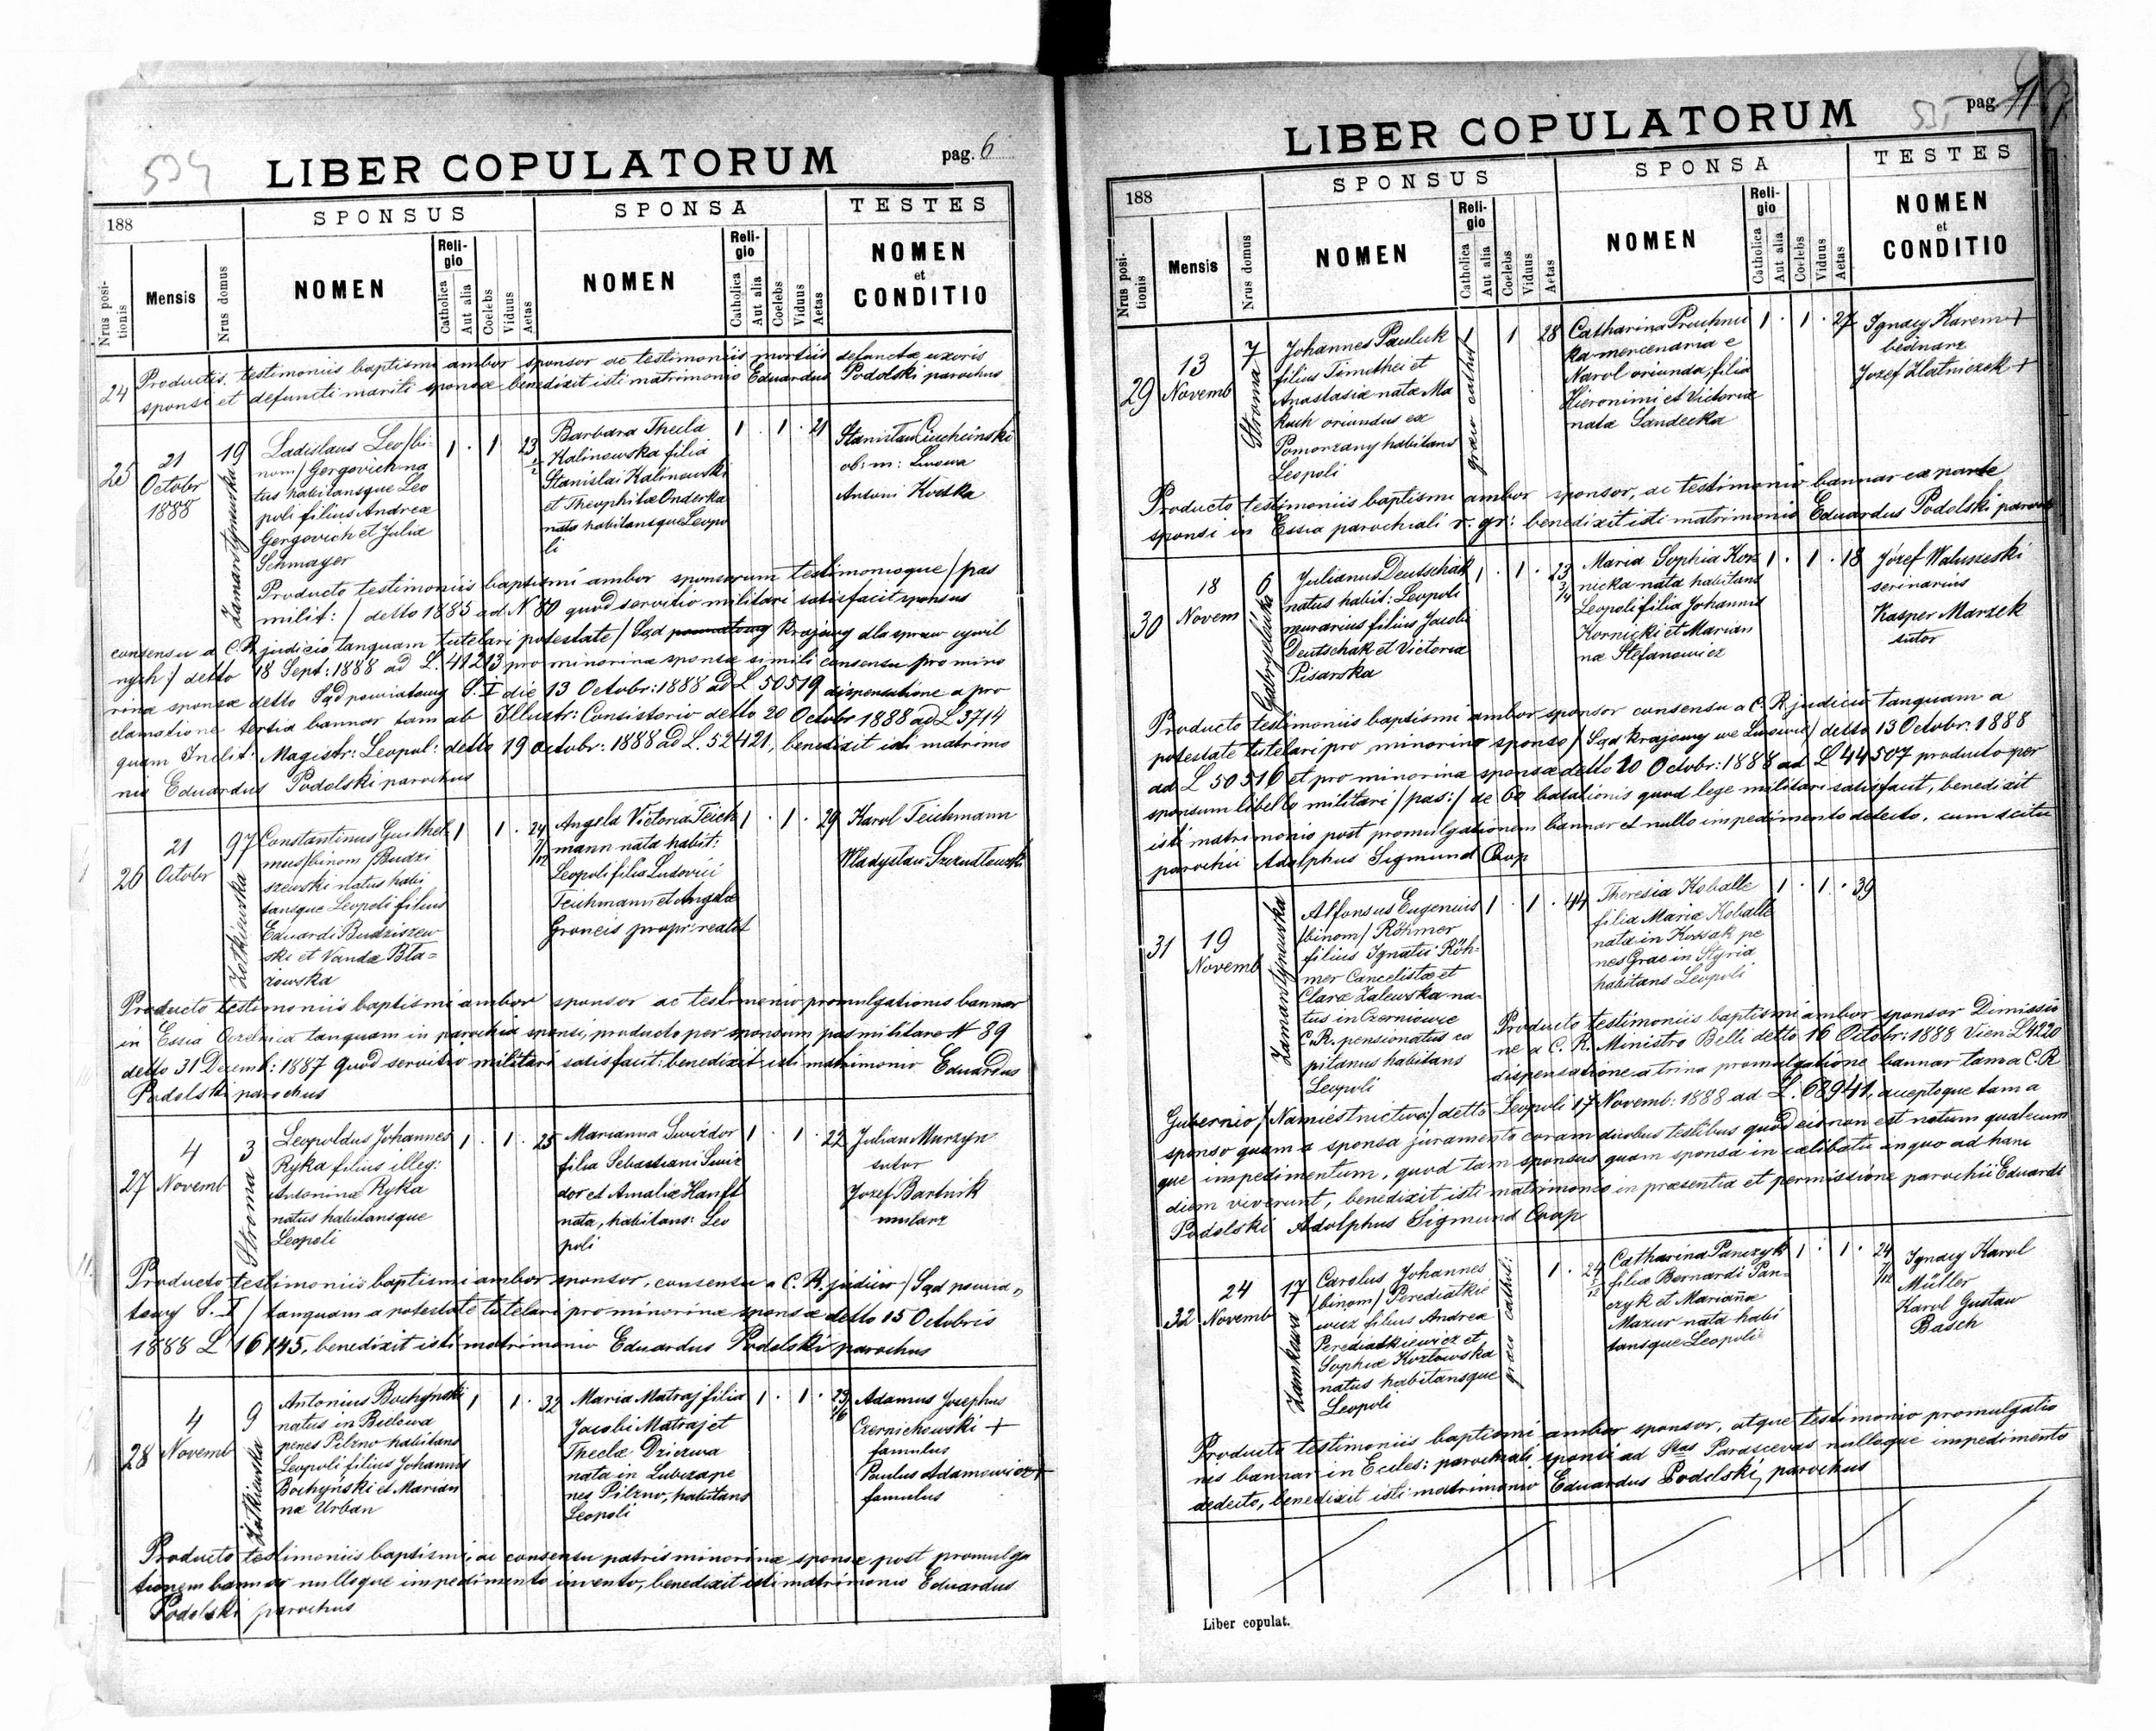 534
LIBER COPULATORUM
pag. 6
188
SPONSUS
SPONSA
TESTES
Nrus positionis
Mensis
Nrus domus
NOMEN
Religio
Catholica
Aut alia
Coelebs
Viduus
Aetas
NOMEN
Religio
Catholica
Aut alia
Coelebs
Viduus
Aetas
NOMEN
et
CONDITIO
24
Productis testimoniis baptismi ambor sponsor ac testimoniis mortis defunctæ uxoris
sponsi et defuncti mariti sponsæ benedixit isti matrimonio Eduardus Podolski parochus
25
21
Octobr
1888
19
Zamarstynowska
Ladislaus Leo/bi-
nom/Gergovich na
tus habitansque Leo
poli filius Andreæ
Gergovich et Juliæ
Schmayer
1 . 1 23 1/2
Barbara Thecla
Kalinowska filia
Stanislai Kalinowski
et Theophilæ Onderka
nata habitansque Leopo
li
1 . 1 . 21
Stanisław Ciuchciński
ob: m: Lwowa
Antoni Kostka
Producto testimoniis baptismi ambor sponsorum testimonioque /pas
milit:/ detto 1885 ad N 80 quod servitio militari satisfacit sponsus
consensu a C.R. judicio tanquam tutelari potestate/ Sąd krajowy dla spraw cywil
nych/ detto 18 Sept: 1888 ad L. 41213 pro minorina sponsa simili consensu pro mino
rina sponsa detto Sąd powiatowy S. I die 13 Octobr: 1888 ad L 50519 dispensatione a pro
clamatione tertia bannor tam ab Illustr: Consistorio detto 20 Octobr 1888 ad L 3714
quam Inclit: Magistr: Leopol: detto 19 octobr: 1888 ad L. 52421, benedixit isti matrimo
nio Eduardus Podolski parochus
26
21
Octobr
97
Zołkiewska
Constantinus Guilhel
mus/binom/Budzi
szewski natus habi
tansque Leopoli filius
Eduardi Budziszew
ski et Vandæ Bła=
żowska
1 1 . 24 7/12
Angela Victoria Teich
mann nata habit:
Leopoli filia Ludovici
Teichmann et Angelæ
Groneis propr: realit
1 . 1 . 29
Karol Teichmann
Władysław Szczudłowski
Producto testimoniis baptismi ambor sponsor ac testimonio promulgationis bannor
in Essia tanquam in parochia sponsi, producto per sponsum pas militare N 89
detto 31 Decemb: 1887 quod servitio militari satisfacit; benedixit isti matrimonio Eduardus
Podolski parochus
27
4
Novemb
3
Stroma
Leopoldus Johannes
Ryka filius illeg:
Antoninæ Ryka
natus habitansque
Leopoli
1 . 1 . 25
Marianna Swizdor
filia Sebastiani Swiz
dor et Amaliæ Hanft
nata, habitans: Leo
poli
1 . 1 . 22
Julian Murzyn
sutor
Jozef Bartnik
mularz
Producto testimoniis baptismi ambor sponsor, consensu a C. R. judicio /Sąd powia„
towy S. I/ tanquam a potestate tutelari pro minorina sponsæ detto 15 Octobris
1888 L 16145, benedixit isti matrimonio Eduardus Podolski parochus
28
4
Novemb
9
Zołkiewska
Antonius Bochyński
natus in Bielowa
penes Pilzno habitans
Leopoli filius Johannis
Bochyński et Marian
næ Urban
1 1 . 32
Maria Matraj filia
Jacobi Matraj et
Theclæ Dziezwa
nata in Lubcza pe
nes Pilzno, habitans
Leopoli
1 . 1 . 23 1/6
Adamus Josephus
Czernichowski +
famulus
Paulus Adamowicz +
famulus
Producto testimoniis baptismi, ac consensu patris minorinæ sponsæ post promulga
tionem bannor nulloque impedimento invento, benedixit isti matrimonio Eduardus
Podolski parochus
535
LIBER COPULATORUM
pag. 7
188
SPONSUS
SPONSA
TESTES
Nrus positionis
Mensis
Nrus domus
NOMEN
Religio
Catholica
Aut alia
Coelebs
Viduus
Aetas
NOMEN
Religio
Catholica
Aut alia
Coelebs
Viduus
Aetas
NOMEN
et
CONDITIO
29
13
Novemb
7
Stroma
Johannes Pauluk
filius Timothei et
Anastasiæ nata Ma
kuch oriundus ex
Pomorzany habitans
Leopoli
1
græco cathol:
1 28
Catharina
ka mercenaria e
Narol oriunda, filia
Hieronimi et Victoriæ
nata Sandecka
1 . 1 . 27
Ignacy Karem +
bednarz
Jozef Złatniczek +
Producto testimoniis baptismi ambor sponsor, ac testimonio bannor ex parte
sponsi in Essia parochiali r. gr: benedixit isti matrimonio Eduardus Podolski paroch
30
18
Novem
6
Gabryelówka
Julianus Deutschak
natus habit: Leopoli
murarius filius Jacobi
Deutschak et Victoriæ
Pisarska
1 . 1 . 23 3/4
Maria Sophia Kor
nicka nata habitans
Leopoli filia Johannis
Kornicki et Marian
næ Stefanowicz
1 . 1 . 18
Józef Waluszeski
serinarius
Kasper Marzek
sutor
Producto testimoniis baptismi ambor sponsor consensu a C. R. judicio tanquam a
potestate tutelari pro minorino sponso/ Sąd krajowy we Lwowie/ detto 13 Octobr: 1888
ad L 50516 et pro minorina sponsæ detto 20 Octobr: 1888 ad L 44507 producto per
sponsum libello militari /pas:/ de 60 batalionis quod lege militari satisfacit, benedixit
isti matrimonio post promulgationem bannor et nullo impedimento detecto, cum scitu
parochii Adolphus Sigmund Coop
31
19
Novemb
Zamarstynowska
Alfonsus Eugenius
/binom/ Röhmer
filius Ignatii Röh-
mer Cancelistæ et
Claræ Zalewska na-
tus in Czerniowce
C.R. pensionatus ca
pitanus habitans
Leopoli
1 . 1 . 44
Theresia Koballe
filia Mariæ Koballe
nata in pe
nes Grac in Styria
habitans Leopoli
1 . 1 . 39
Producto testimoniis baptismi ambor sponsor Dimissio
ne a C. R. Ministro Belli detto 16 Octobr: 1888 Vien L 4220
dispensatione a trina promulgatione bannor tam a C.R.
Gubernio /Namiestnictwa/ detto Leopoli 17 Novemb: 1888 ad L. 68941, acceptoque tam a
sponso quam a sponsa juramento coram duobus testibus quod eis non est notum qualecum
que impedimentum, quod tam sponsus quam sponsa in cælibatu in quo ad hanc
diem viverunt, benedixit isti matrimonio in præsentia et permissione parochii Eduardi
Podolski Adolphus Sigmund Coop
32
24
Novemb
17
Zamkowa
Carolus Johannes
/binom/ Perediatkie
wicz filius Andreæ
Perediatkiewicz et
Sophiæ Kozłowska
natus habitansque
Leopoli
græco cathol:
1 . 24 5/12
Catharina Panczyk
filia Bernardi Pan-
czyk et Mariañæ
Mazur nata habi
tansque Leopoli
1 . 1 . 24 7/12
Ignacy Karol
Müller
Karol Gustaw
Basch
Producto testimoniis baptismi ambor sponsor, atque testimonio promulgatio
nis bannor in Eccles: parochiali sponsi ad Stas Parascevas nulloque impedimento
dedecto, benedixit isti matrimonio Eduardus Podolski, parochus
Liber copulat.